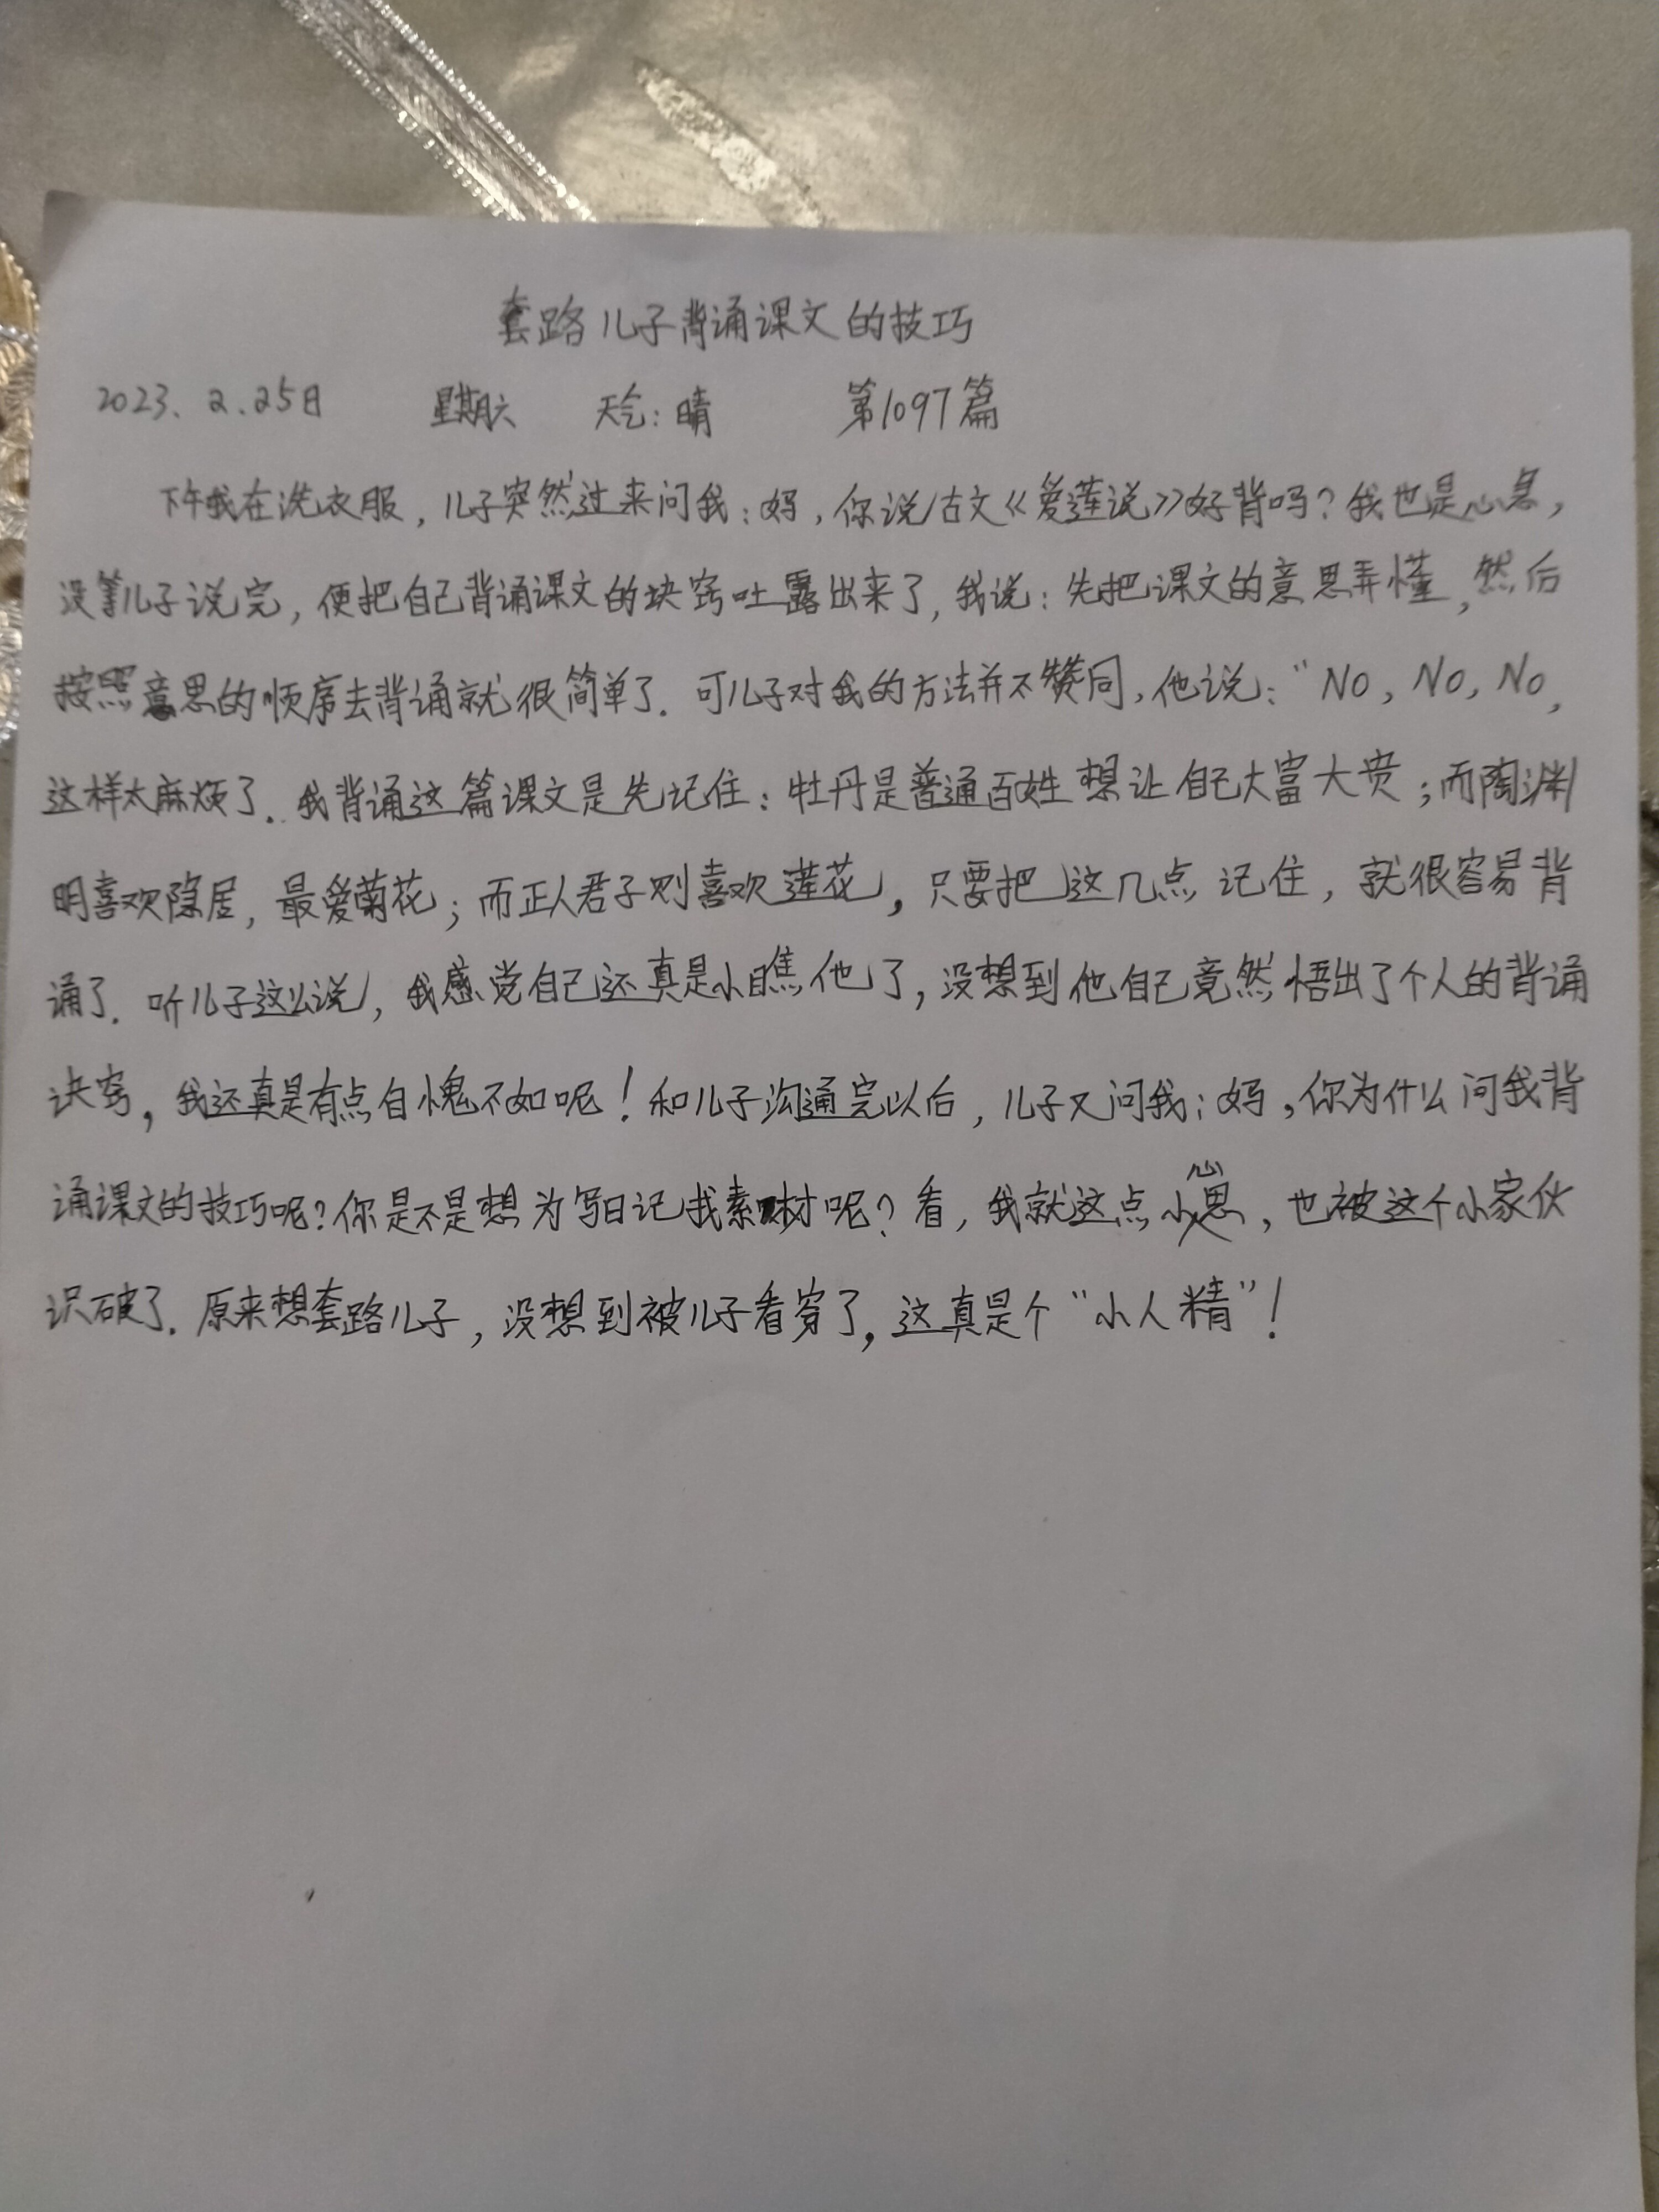 套路儿子背诵课文的技巧
2023.2.25日 星期六 天气:晴 第1097篇
下午我在洗衣服,儿子突然过来问我:妈,你说古文《爱莲说》好背吗?我也是心急,
没等儿子说完,便把自己背诵课文的块窍吐露出来了,我说:先把课文的意思弄懂,然后
按照意思的顺序去背诵就很简单了.可儿子对我的方法并不赞同,他说:"No,No,No,
这样太麻烦了.我背诵这篇课文是先记住:牡丹是普通百姓想让自己大富大贵;而陶渊
明喜欢隐居,最爱菊花;而正人君子则喜欢莲花,只要把这几点记住,就很容易背
诵了.听儿子这么说,我感觉自己还真是小瞧他了,没想到他自己竟然悟出了个人的背诵
诀窍,我还真是有点自愧不如呢!和儿子沟通完以后,儿子又问我:妈,你为什么问我背
诵课文的技巧呢?你是不是想为写日记找素材呢?看,我就这点小心思,也被这个小家伙
识破了.原来想套路儿子,没想到被儿子看穿了,这真是个"小人精"!